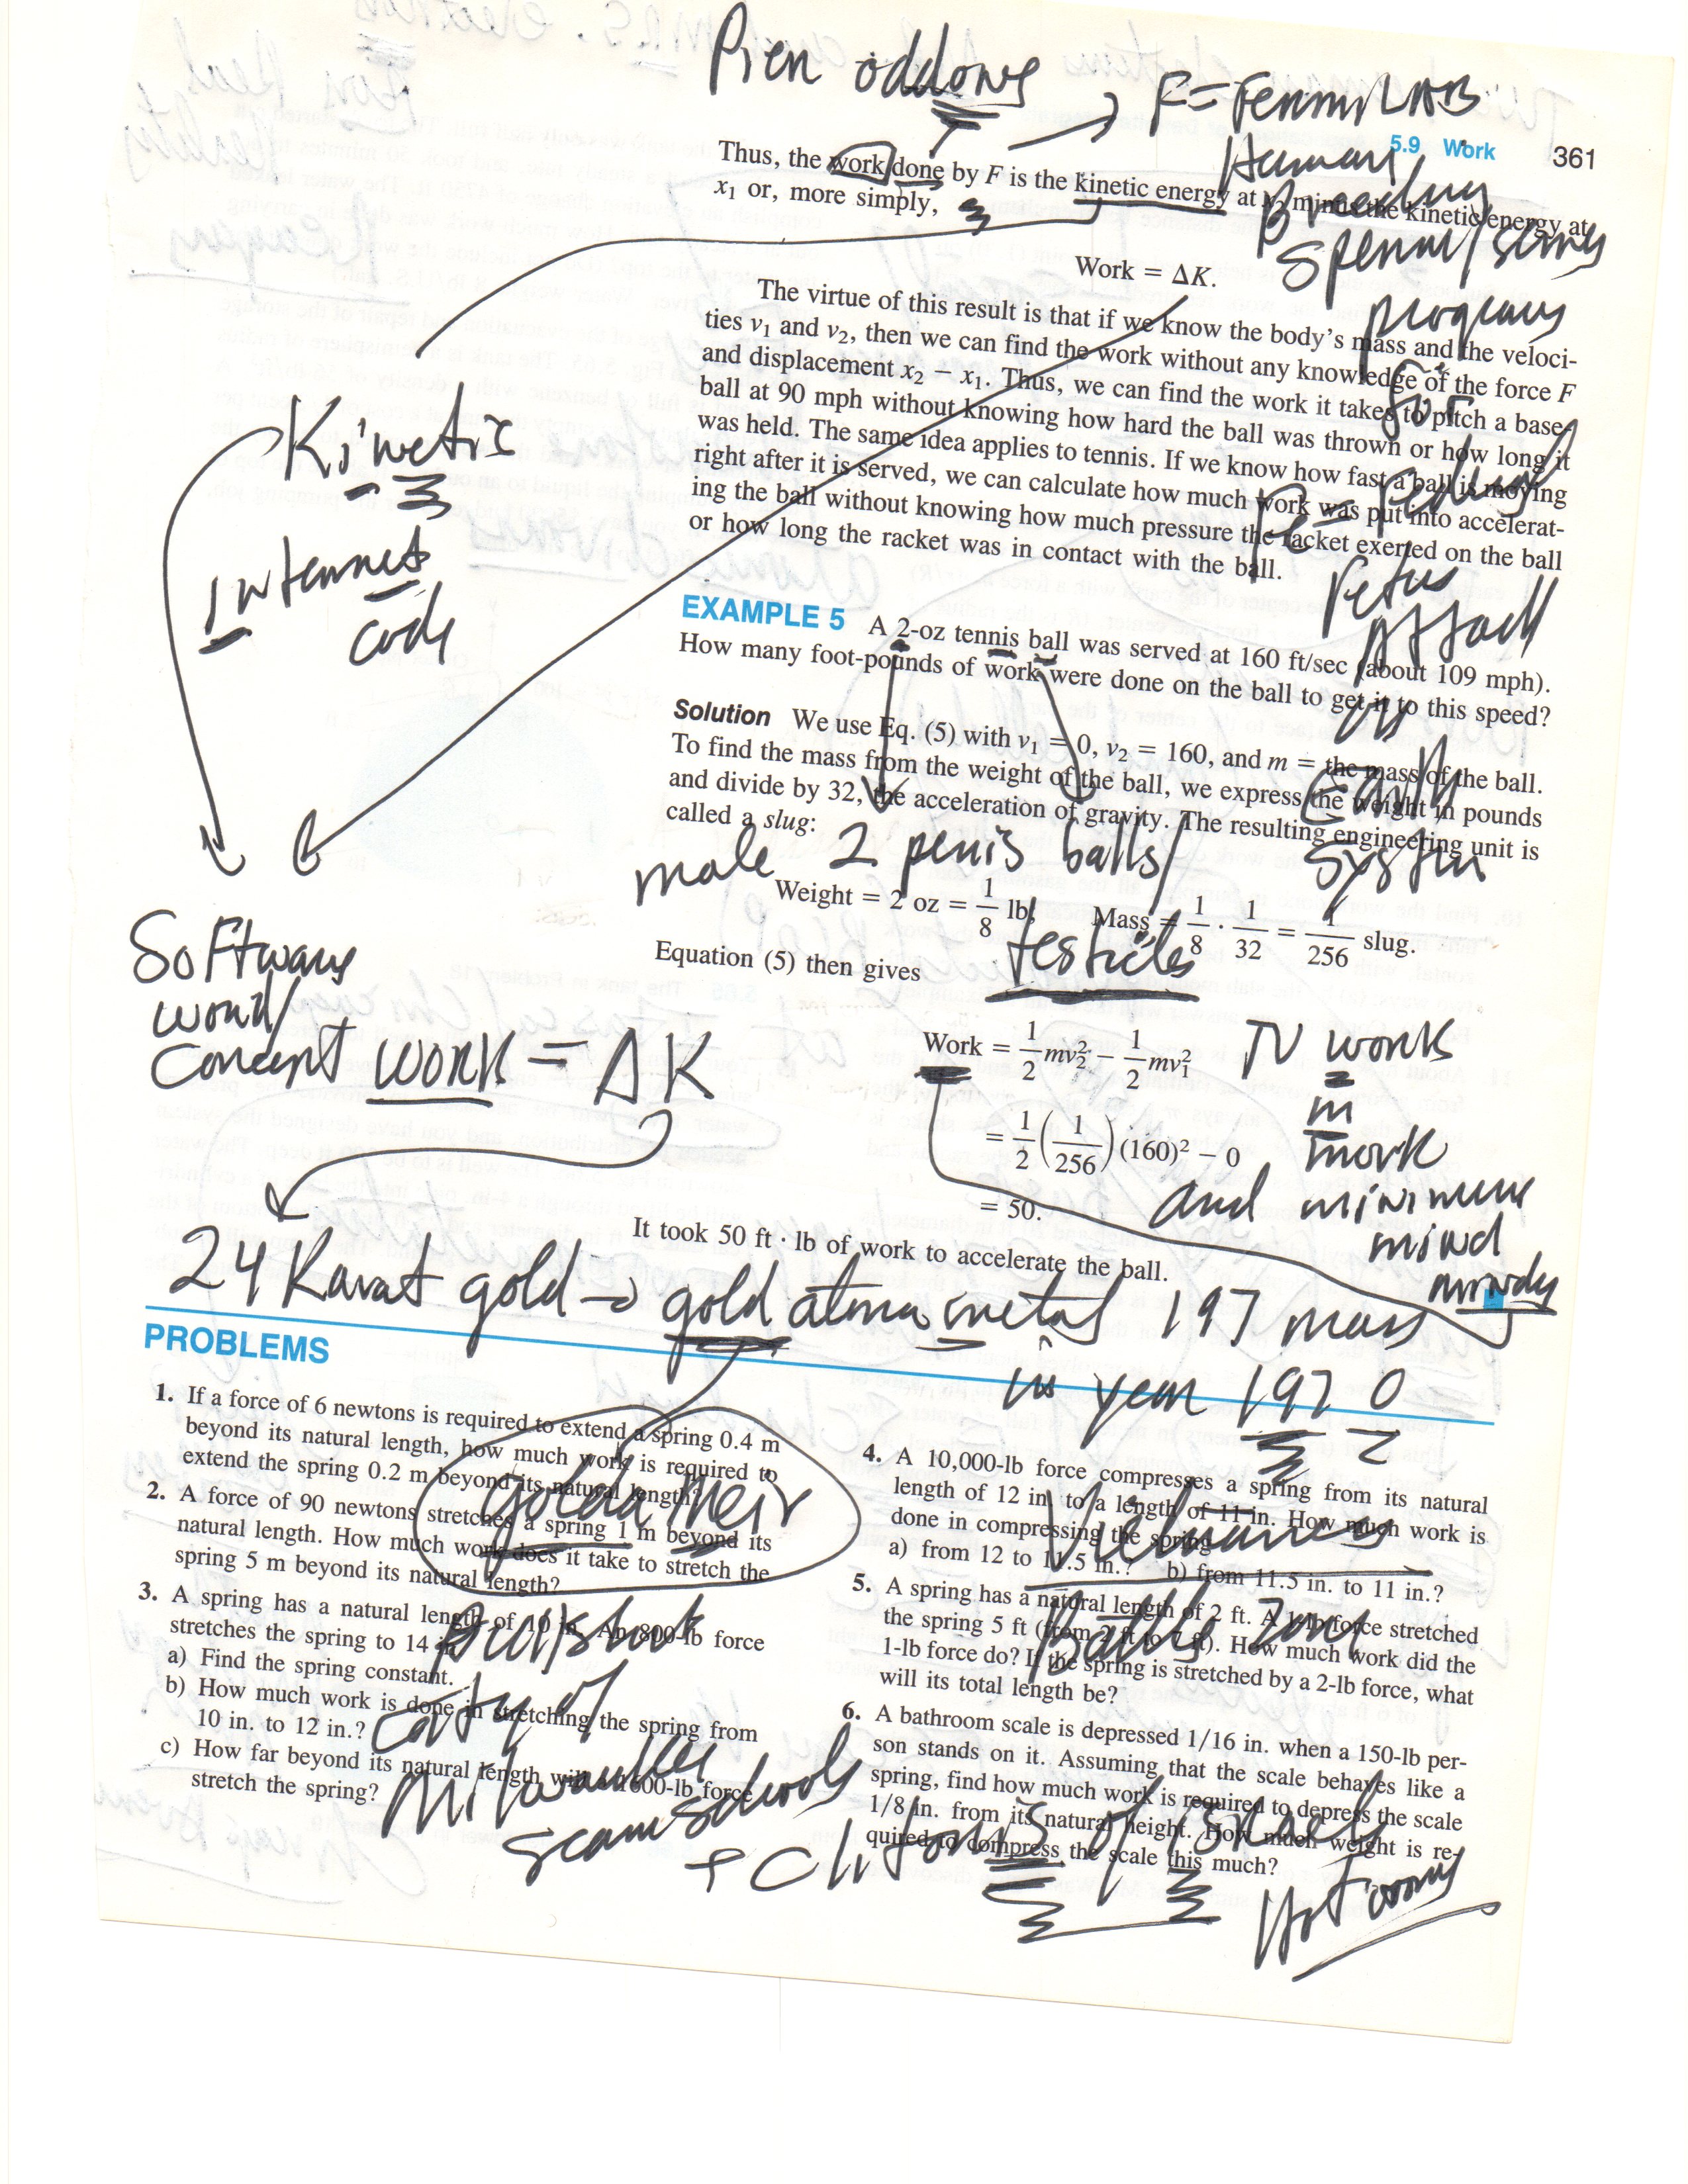 Pier oddone
F = FermiLAB
5.9 Work 361
Human
Breeding
Sperm/semen
programs
for
Fe = Federal
Fetus
Attack
Early
System
Thus, the work done by F is the kinetic energy at x₂ minus the kinetic energy at
x₁ or, more simply,
Work = ΔK.
The virtue of this result is that if we know the body's mass and the veloci-
ties v₁ and v₂, then we can find the work without any knowledge of the force F
and displacement x₂ − x₁. Thus, we can find the work it takes to pitch a base-
ball at 90 mph without knowing how hard the ball was thrown or how long it
was held. The same idea applies to tennis. If we know how fast a ball is moving
right after it is served, we can calculate how much work was put into accelerat-
ing the ball without knowing how much pressure the racket exerted on the ball
or how long the racket was in contact with the ball.
Kinetix
Internet
code
EXAMPLE 5 A 2-oz tennis ball was served at 160 ft/sec (about 109 mph).
How many foot-pounds of work were done on the ball to get it to this speed?
Solution We use Eq. (5) with v₁ = 0, v₂ = 160, and m = the mass of the ball.
To find the mass from the weight of the ball, we express the weight in pounds
and divide by 32, the acceleration of gravity. The resulting engineering unit is
called a slug:
male 2 penis balls/
testicles
Weight = 2 oz = 1/8 lb, Mass = 1/8 · 1/32 = 1/256 slug.
Equation (5) then gives
Software
word/
concept work = ΔK
Work = 1/2 mv₂² − 1/2 mv₁²
= 1/2 (1/256) (160)² − 0
= 50.
TV work
m
mork
and minimum
mind
mindy
It took 50 ft · lb of work to accelerate the ball.
24 Karat gold → gold atma metal 197 mass
in year 1970
PROBLEMS
1. If a force of 6 newtons is required to extend a spring 0.4 m
beyond its natural length, how much work is required to
extend the spring 0.2 m beyond its natural length?
2. A force of 90 newtons stretches a spring 1 m beyond its
natural length. How much work does it take to stretch the
spring 5 m beyond its natural length?
3. A spring has a natural length of 10 in. An 800-lb force
stretches the spring to 14
a) Find the spring constant.
b) How much work is done in stretching the spring from
10 in. to 12 in.?
c) How far beyond its natural length will a 1600-lb force
stretch the spring?
Golda Meir
city of
Milwaukee
scam schools
+ Clitoris of Israel
4. A 10,000-lb force compresses a spring from its natural
length of 12 in. to a length of 11 in. How much work is
done in compressing the spring
a) from 12 to 11.5 in.? b) from 11.5 in. to 11 in.?
5. A spring has a natural length of 2 ft. A 1-lb force stretched
the spring 5 ft (from 2 ft to 7 ft). How much work did the
1-lb force do? If the spring is stretched by a 2-lb force, what
will its total length be?
6. A bathroom scale is depressed 1/16 in. when a 150-lb per-
son stands on it. Assuming that the scale behaves like a
spring, find how much work is required to depress the scale
1/8 in. from its natural height. How much weight is re-
quired to compress the scale this much?
Battle Zone